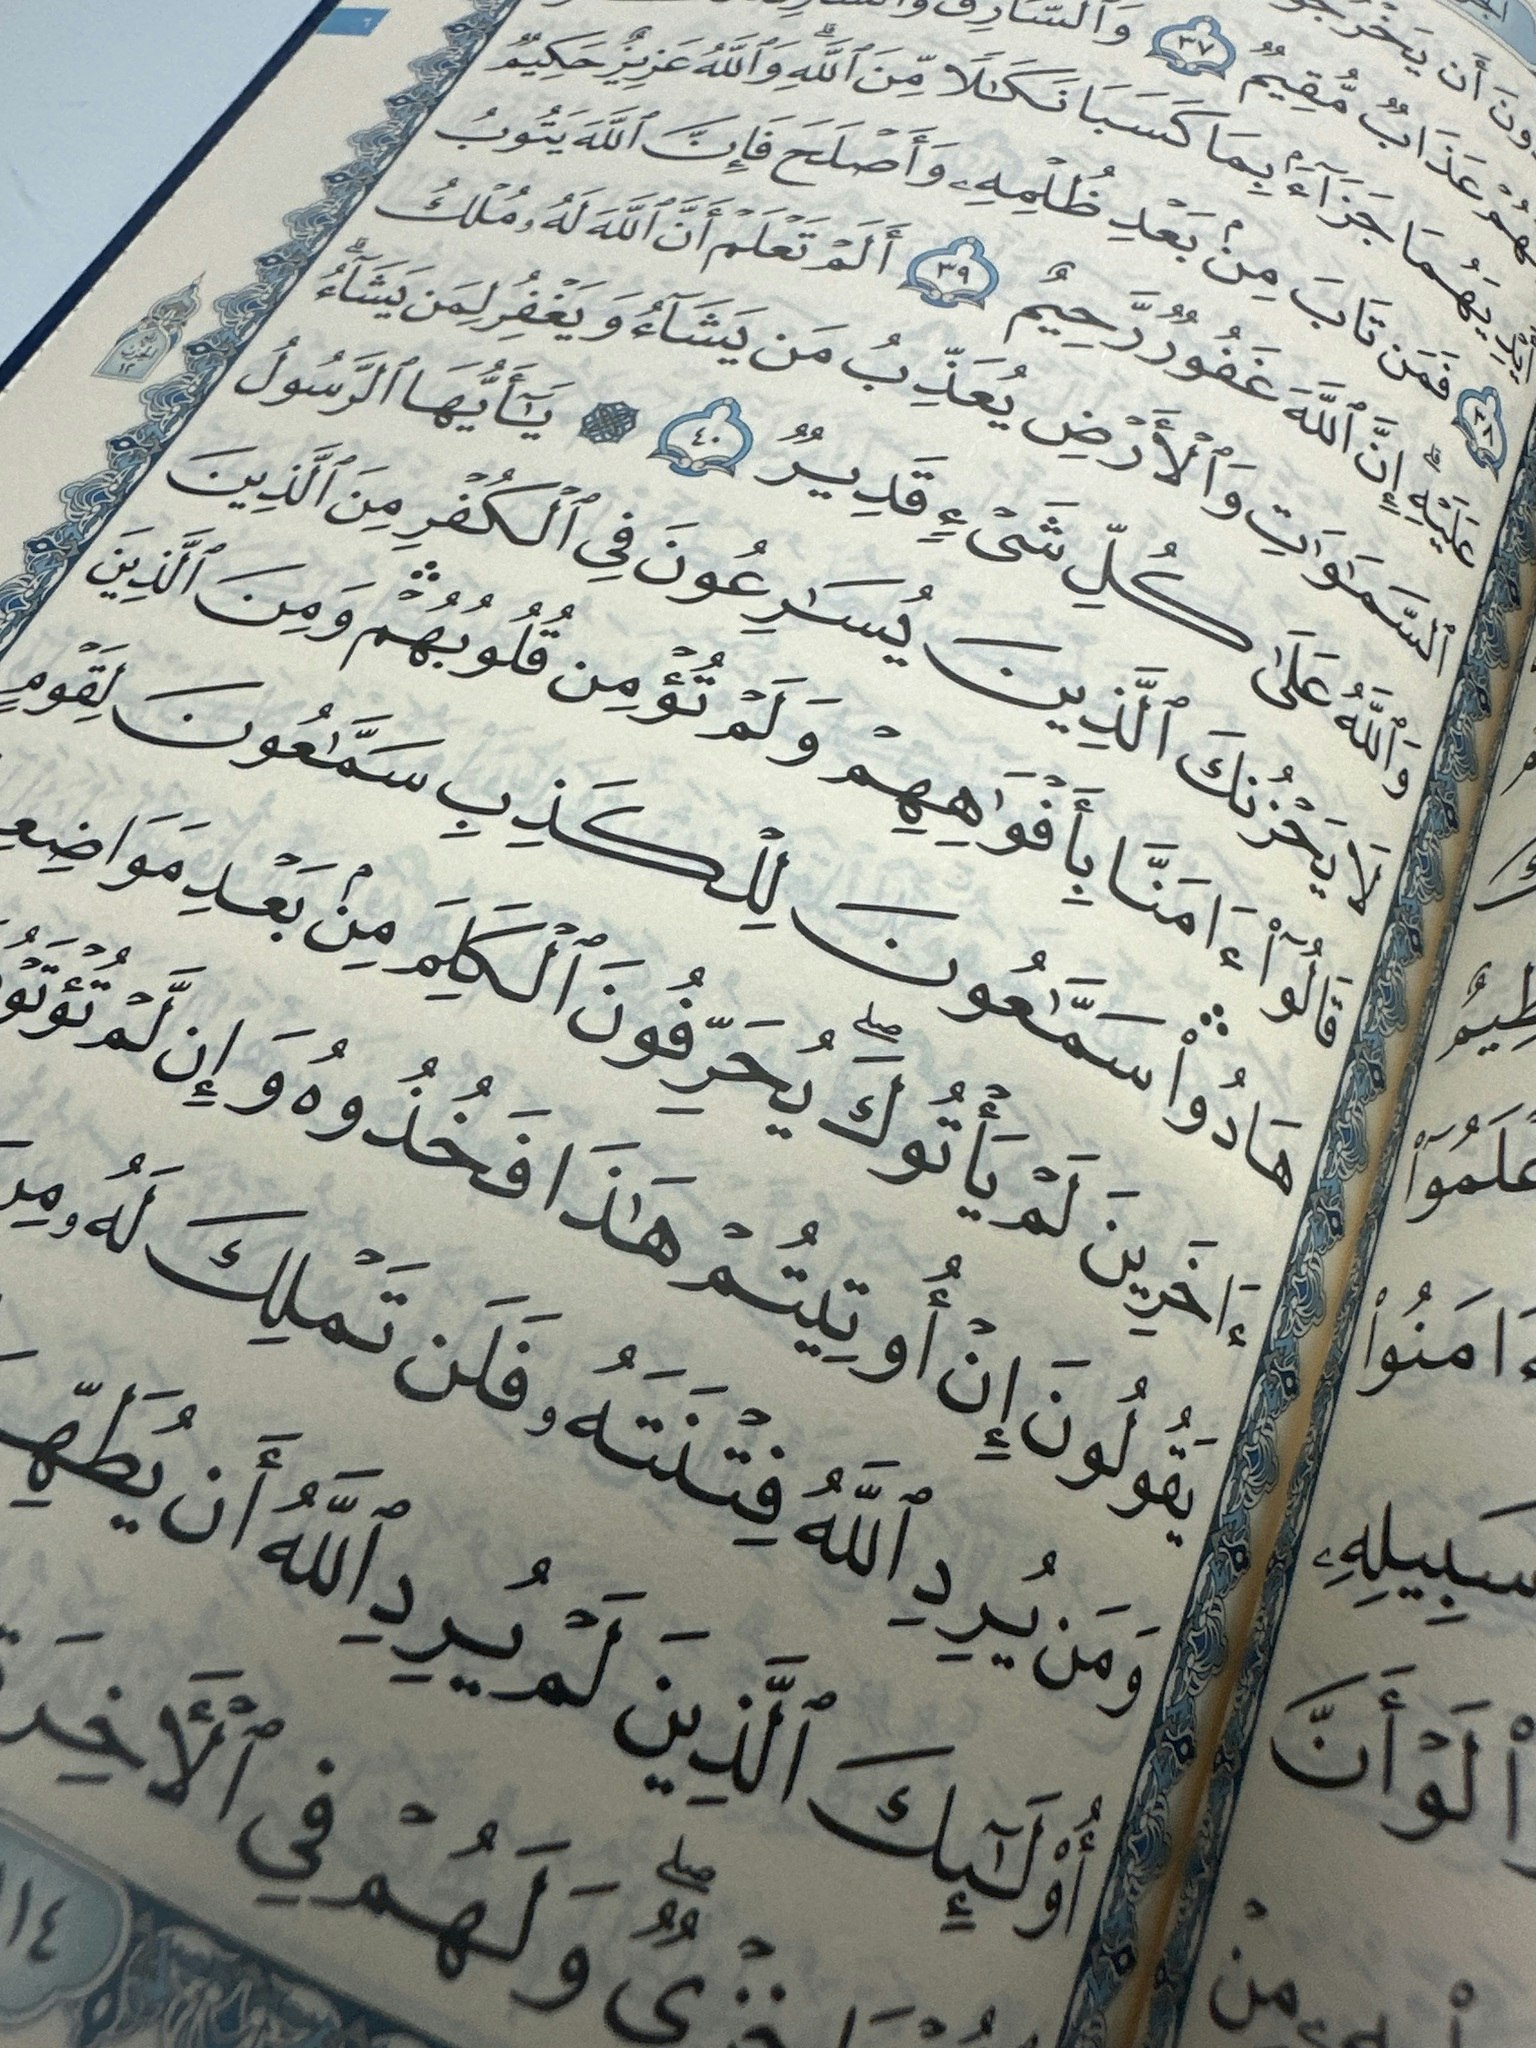 أَن يَخْرُجُوا۟
عَذَابٌ مُّقِيمٌ ٣٧ وَٱلسَّارِقُ
أَيْدِيَهُمَا جَزَآءًۢ بِمَا كَسَبَا نَكَـٰلًا مِّنَ ٱللَّهِ ۗ وَٱللَّهُ عَزِيزٌ حَكِيمٌ
٣٨ فَمَن تَابَ مِنۢ بَعْدِ ظُلْمِهِۦ وَأَصْلَحَ فَإِنَّ ٱللَّهَ يَتُوبُ
عَلَيْهِ ۗ إِنَّ ٱللَّهَ غَفُورٌ رَّحِيمٌ ٣٩ أَلَمْ تَعْلَمْ أَنَّ ٱللَّهَ لَهُۥ مُلْكُ
ٱلسَّمَـٰوَٰتِ وَٱلْأَرْضِ يُعَذِّبُ مَن يَشَآءُ وَيَغْفِرُ لِمَن يَشَآءُ ۗ
وَٱللَّهُ عَلَىٰ كُلِّ شَىْءٍ قَدِيرٌ ٤٠ يَـٰٓأَيُّهَا ٱلرَّسُولُ
لَا يَحْزُنكَ ٱلَّذِينَ يُسَـٰرِعُونَ فِى ٱلْكُفْرِ مِنَ ٱلَّذِينَ
قَالُوٓا۟ ءَامَنَّا بِأَفْوَٰهِهِمْ وَلَمْ تُؤْمِن قُلُوبُهُمْ ۛ وَمِنَ ٱلَّذِينَ
هَادُوا۟ ۛ سَمَّـٰعُونَ لِلْكَذِبِ سَمَّـٰعُونَ لِقَوْمٍ
ءَاخَرِينَ لَمْ يَأْتُوكَ ۖ يُحَرِّفُونَ ٱلْكَلِمَ مِنۢ بَعْدِ مَوَاضِعِ
يَقُولُونَ إِنْ أُوتِيتُمْ هَـٰذَا فَخُذُوهُ وَإِن لَّمْ تُؤْتَوْ
وَمَن يُرِدِ ٱللَّهُ فِتْنَتَهُۥ فَلَن تَمْلِكَ لَهُۥ مِنَ
أُو۟لَـٰٓئِكَ ٱلَّذِينَ لَمْ يُرِدِ ٱللَّهُ أَن يُطَهِّ
خِزْىٌ ۖ وَلَهُمْ فِى ٱلْـَٔاخِرَ
١١٤
ءَامَنُوا۟
سَبِيلِهِۦ
لَوْ أَنَّ
مِنْ